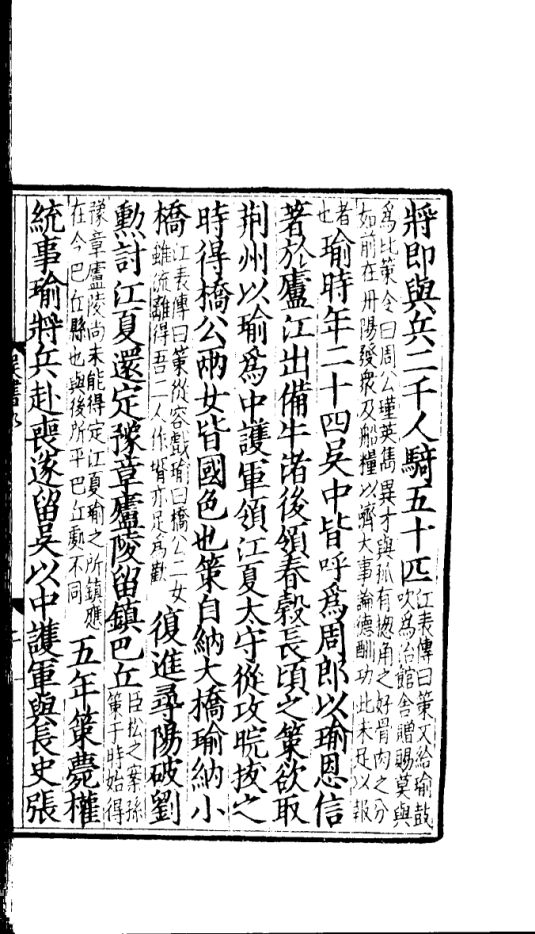 將即與兵二千人騎五十匹江表傳曰策又給瑜鼓吹爲治館舍贈賜莫與
爲比策令曰周公瑾英雋異才與孤有揔角之好骨肉之分如前在丹陽發衆及船糧以濟大事論德酬功此未足以報
者也瑜時年二十四吳中皆呼爲周郎以瑜恩信
著於廬江出備牛渚後領春穀長頃之策欲取
荆州以瑜爲中護軍領江夏太守從攻晥拔之
時得橋公兩女皆國色也策自納大橋瑜納小
橋江表傳曰策從容戲瑜曰橋公二女雖流離得吾二人作壻亦足爲歡復進尋陽破劉
勲討江夏還定豫章廬陵留鎮巴丘臣松之案孫策于時始得
豫章廬陵尚未能得定江夏瑜之所鎮應在今巴丘縣也與後所平巴丘處不同五年策薨權
統事瑜將兵赴喪遂留吳以中護軍與長史張